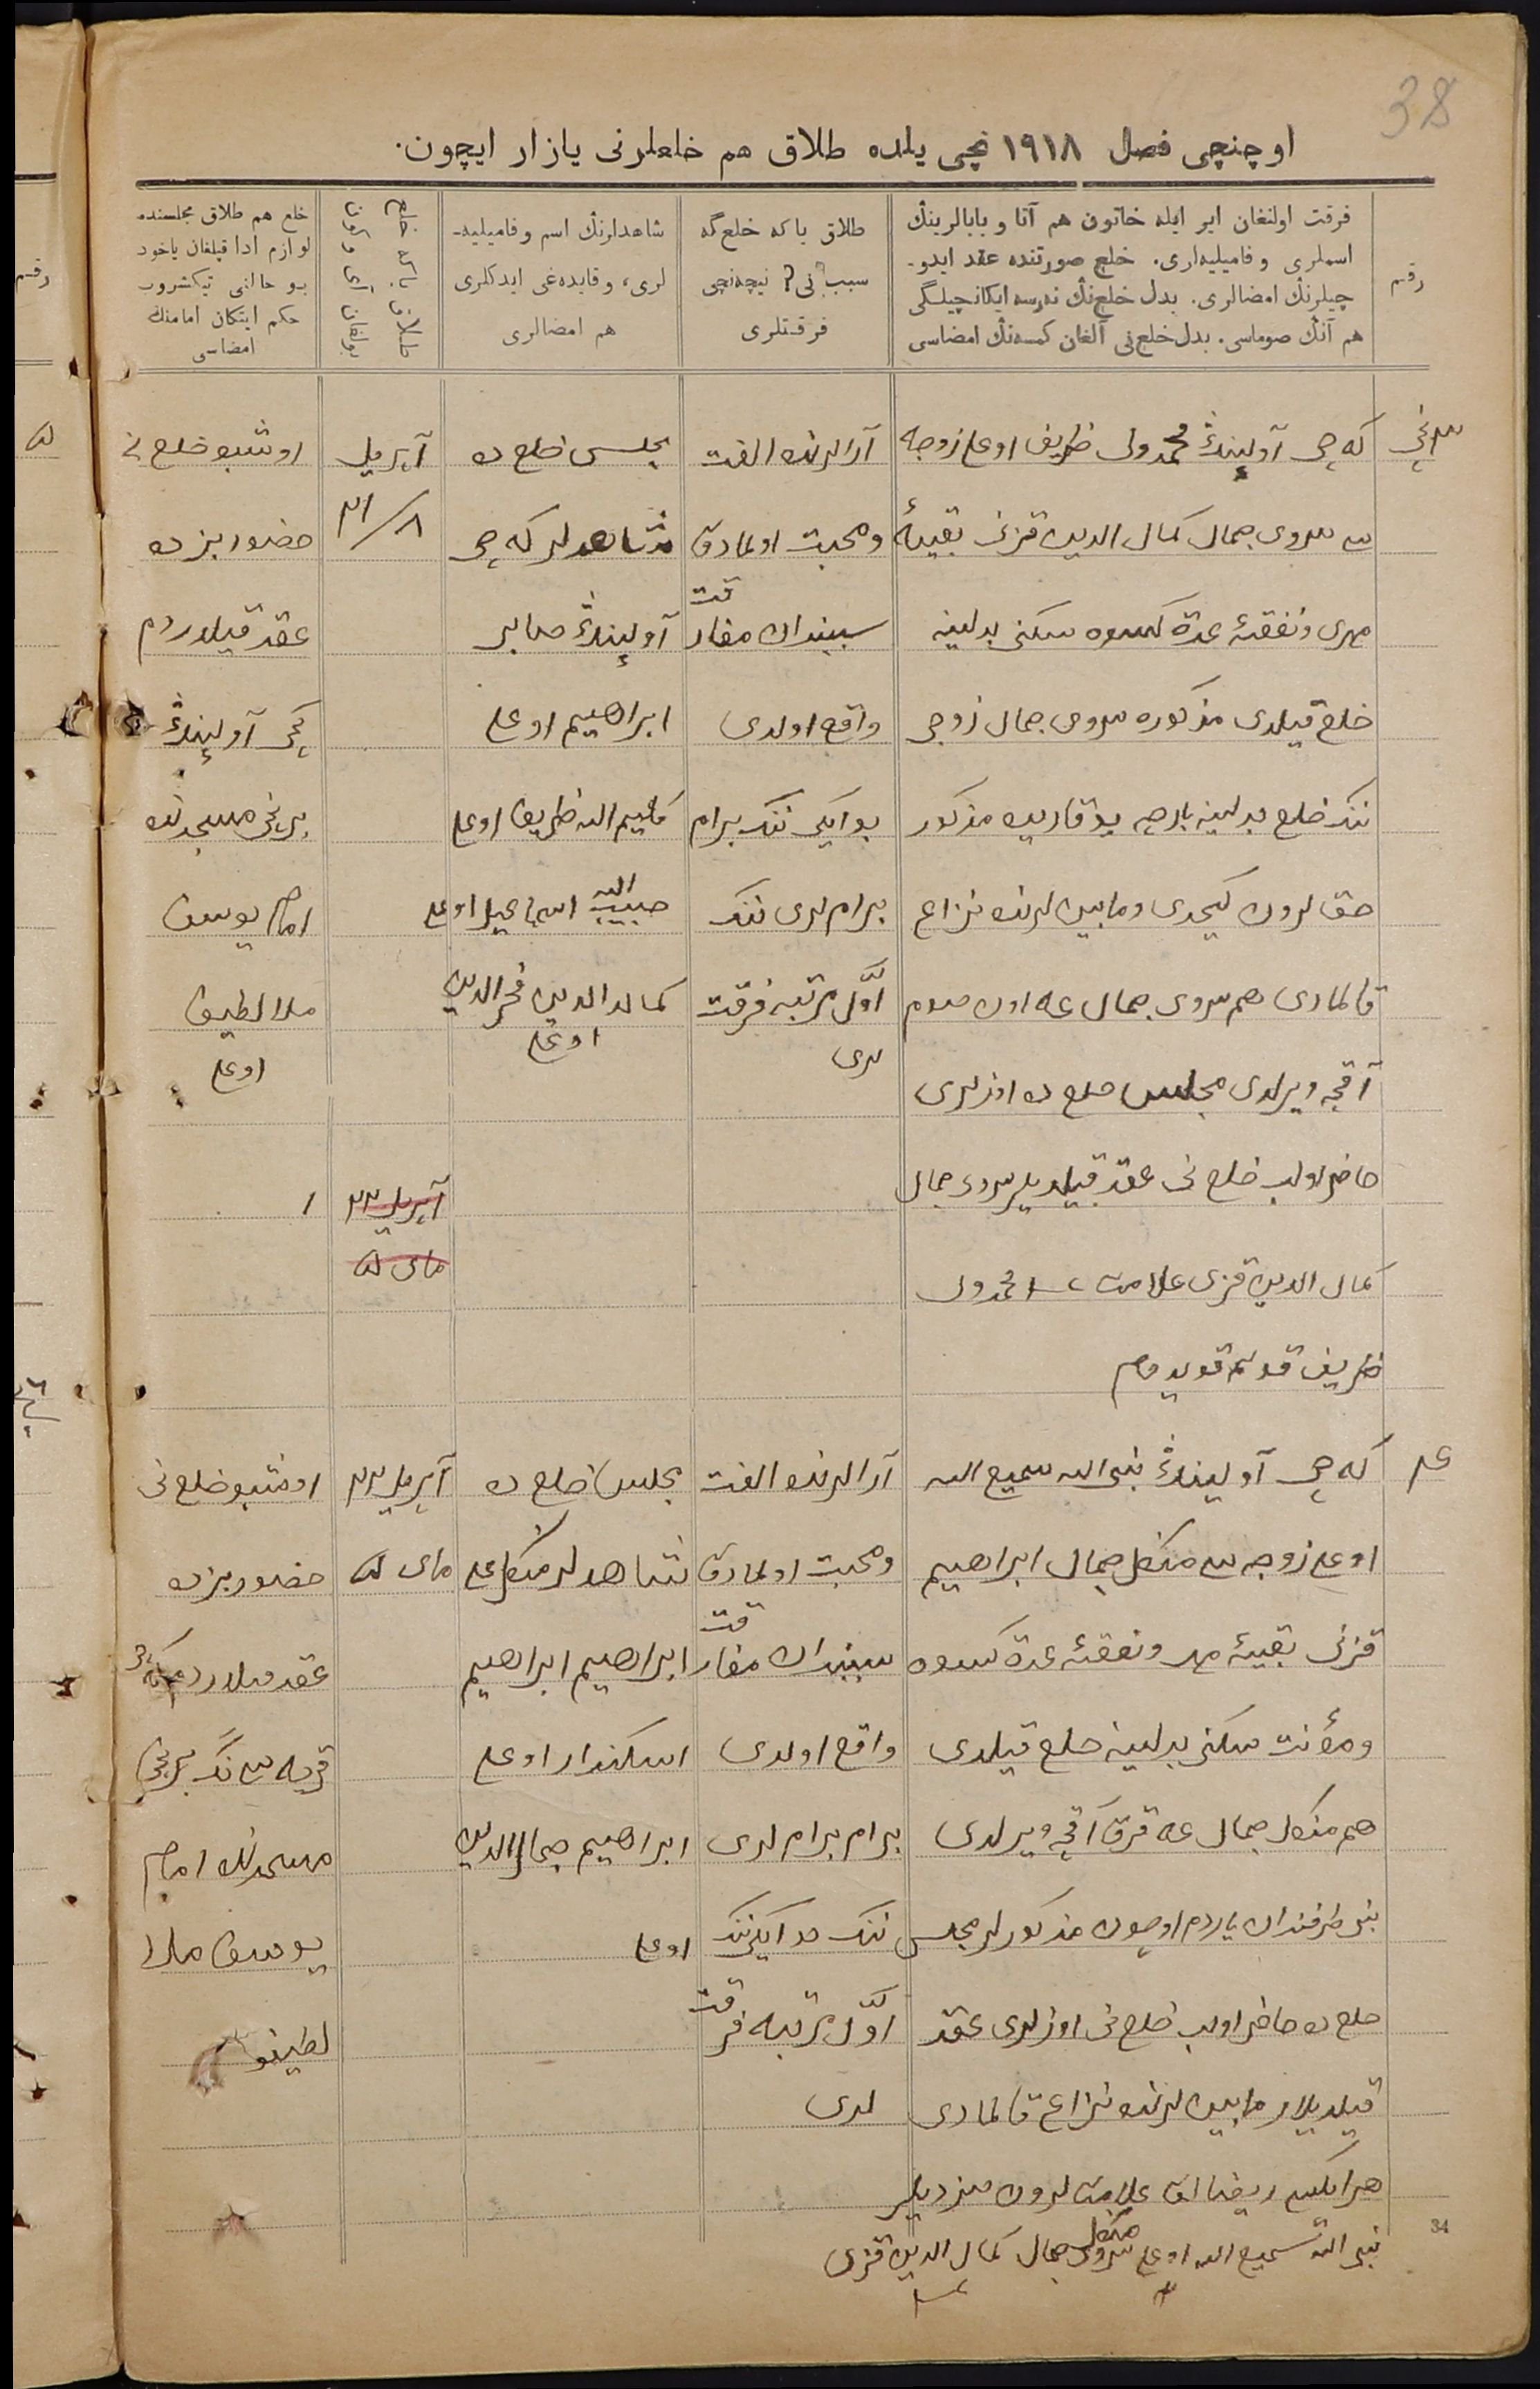 38
اوچنچی فصل ۱۹۱۸ نچی یلده طلاق هم خلعلرنی یازار ایچون.
رقم
فرقت اولنغان ایر ایله خاتون هم آتا و بابالرینڭ
اسملری و فامیلیه‌لری. خلع صورتنده عقد ایدو-
چیلرنڭ امضالری. بدل خلع‌نڭ نەرسه ایکانچیلگی
هم آنڭ صوماسی. بدل خلع‌نی آلغان کمسه‌نڭ امضاسی
طلاق یا که خلع گه
سبب نی؟ نیچه‌نچی
فرقتلری
شاهدلرنڭ اسم و فامیلیه-
لری، و قایده‌غی ایدکلری
هم امضالری
خلع هم طلاق مجلسنده
لوازم ادا قیلغان یاخود
بو حالنی تیکشروب
حکم ایتکان امامنڭ
امضاسی
که چی آولینڭ محمدولی ظریف اوغلی زوجه
سی سروی جمال کمال الدین قزنی بقیهٔ
مهری ونفقهٔ عدة کسوه سکنی بدلینه
خلع قیلدی مذکوره سروی جمال زوجی
ننك خلع بدلینه بارچه یوقاریده مذکور
حق لردن کیچدی و مابین لرنده نزاع
قالمادی هم سروی جمال غه اون صوم
آقچه ویرلدی مجلس خلع ده اوزلری
حاضر اولب خلع نی عقد قیلدیلر سروی جمال
کمال الدین قزی علامت محمدولی
ظریف قولم قویدم
آرالرنده الفت
ومحبت اولمادق
سببندان مفارقت
واقع اولدی
بو ایکی ننك برام
برام لری ننك
اوّل مرتبه فرقت
لری
مجلس خلع ده
شاهدلر که چی
آولینڭ صابر
ابراهیم اوغلی
کلیم الله ظریف اوغلی
حبیب الله اسماعیل اوغلی
کمال الدین فخرالدین
اوغلی
آپریل
۲۱/۸
اوشبو خلع نی
حضوربزده
عقد قیلدردم
کچی آولینڭ
برنجی مسجدنڭ
امام یوسف
ملا لطیف
اوغلی
آپریل ۲۳
مای ۵
۱
که چی آولینڭ نبی الله سمیع الله
اوغلی زوجه سی منکل جمال ابراهیم
قزنی بقیهٔ مهر ونفقهٔ عدة کسوه
ومؤنت سکنی بدلینه خلع قیلدی
هم منکل جمال غه قرق آقچه ویرلدی
نبی طرفندان یاردم اوچون مذکورلر مجلس
خلع ده حاضر اولب خلع نی اوزلری عقد
قیلدیلر مابین لرنده نزاع قالمادی
هر ایکیسی ریضالق علامت لرون سزدیلر
نبی الله سمیع الله اوغلی منکل جمال کمال الدین قزی
آرالرنده الفت
ومحبت اولمادق
سببندان مفارقت
واقع اولدی
برام برام لری
ننك بو ایکی ننك
اوّل مرتبه فرقت
لری
مجلس خلع ده
شاهدلر منکل علی
ابراهیم ابراهیم
اسکندار اوغلی
ابراهیم جمال الدین
اوغلی
آپریل ۲۳
مای ۵
اوشبو خلع نی
حضوربزده
عقد قیلدردم
قریه سی ننڭ برنجی
مسجدنڭ امام
یوسف ملا
لطیفو
34